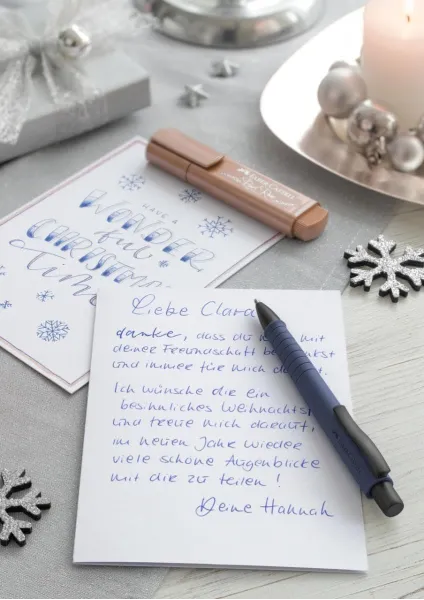 HAVE A
WONDER
ful
CHRISTMAS
Time
FABER-CASTELL
Liebe Clara
danke, dass du mit
deiner Freundschaft
und immer für mich
Ich wünsche dir ein
besinnliches Weihnachts
und freue mich darauf,
im neuen Jahr wieder
viele schöne Augenblicke
mit dir zu teilen!
Deine Hannah